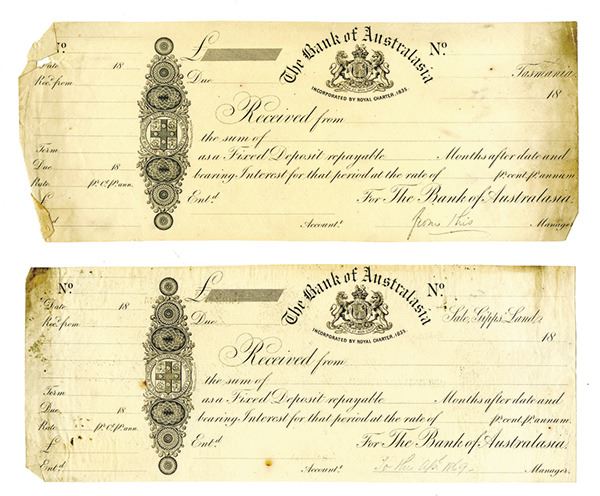 No
£
The Bank of Australasia
No
Date 18
Recd. from
Due
INCORPORATED BY ROYAL CHARTER, 1835.
Tasmania
18
Received from
the sum of
Term
as a Fixed Deposit repayable Months after date and
Due 18
bearing Interest for that period at the rate of p. cent. p. annum
Rate p. Ct. p. ann.
Entd
For The Bank of Australasia.
Accountt from this Manager
No
£
The Bank of Australasia
No
Date 18
Recd. from
Due
INCORPORATED BY ROYAL CHARTER, 1835.
Sale, Gipps' Land,
18
Received from
the sum of
Term
as a Fixed Deposit repayable Months after date and
Due 18
bearing Interest for that period at the rate of p. cent. p. annum.
Rate p. Ct. p. ann.
£
Entd
For The Bank of Australasia.
Entd
Accountt To this 1869. Manager.